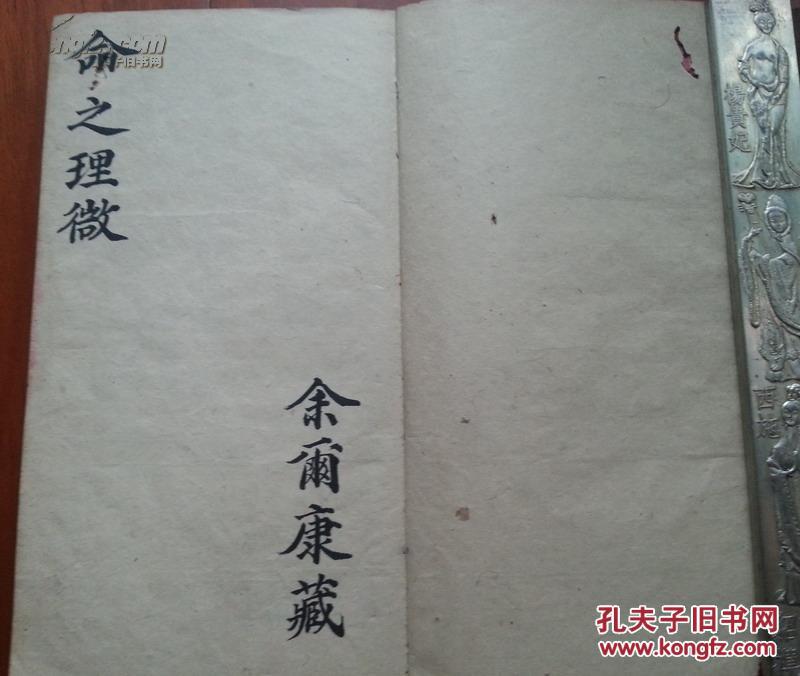 命之理微
余爾康藏
楊貴妃
西施
孔夫子旧书网
www.kongfz.com